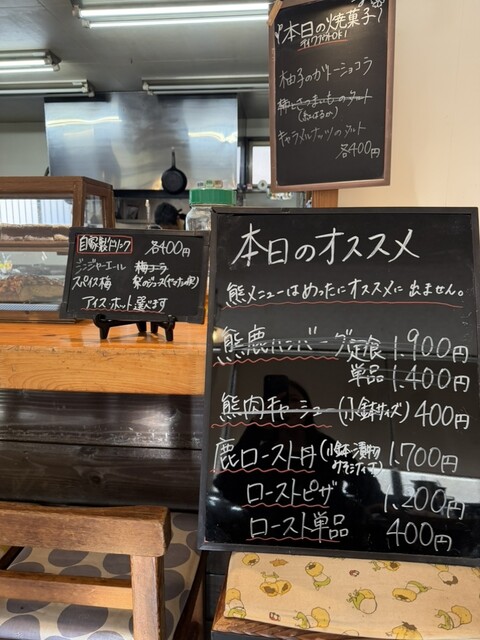 本日の焼菓子
TAKEOUT OK!
柚子のガトーショコラ
柿とさつまいものタルト
(紅はるか)
キャラメルナッツのタルト
各400円
自家製ドリンク 各400円
ジンジャーエール 梅コーラ
スパイス梅
アイス・ホット選べます
本日のオススメ
熊メニューはめったにオススメに出ません。
熊鹿ハンバーグ定食 1.900円
単品 1.400円
熊肉チャーシュー (小鉢サイズ) 400円
鹿ロースト丼 (小鉢・漬物 1.700円
みそ汁付き)
ローストピザ 1.200円
ロースト単品 400円